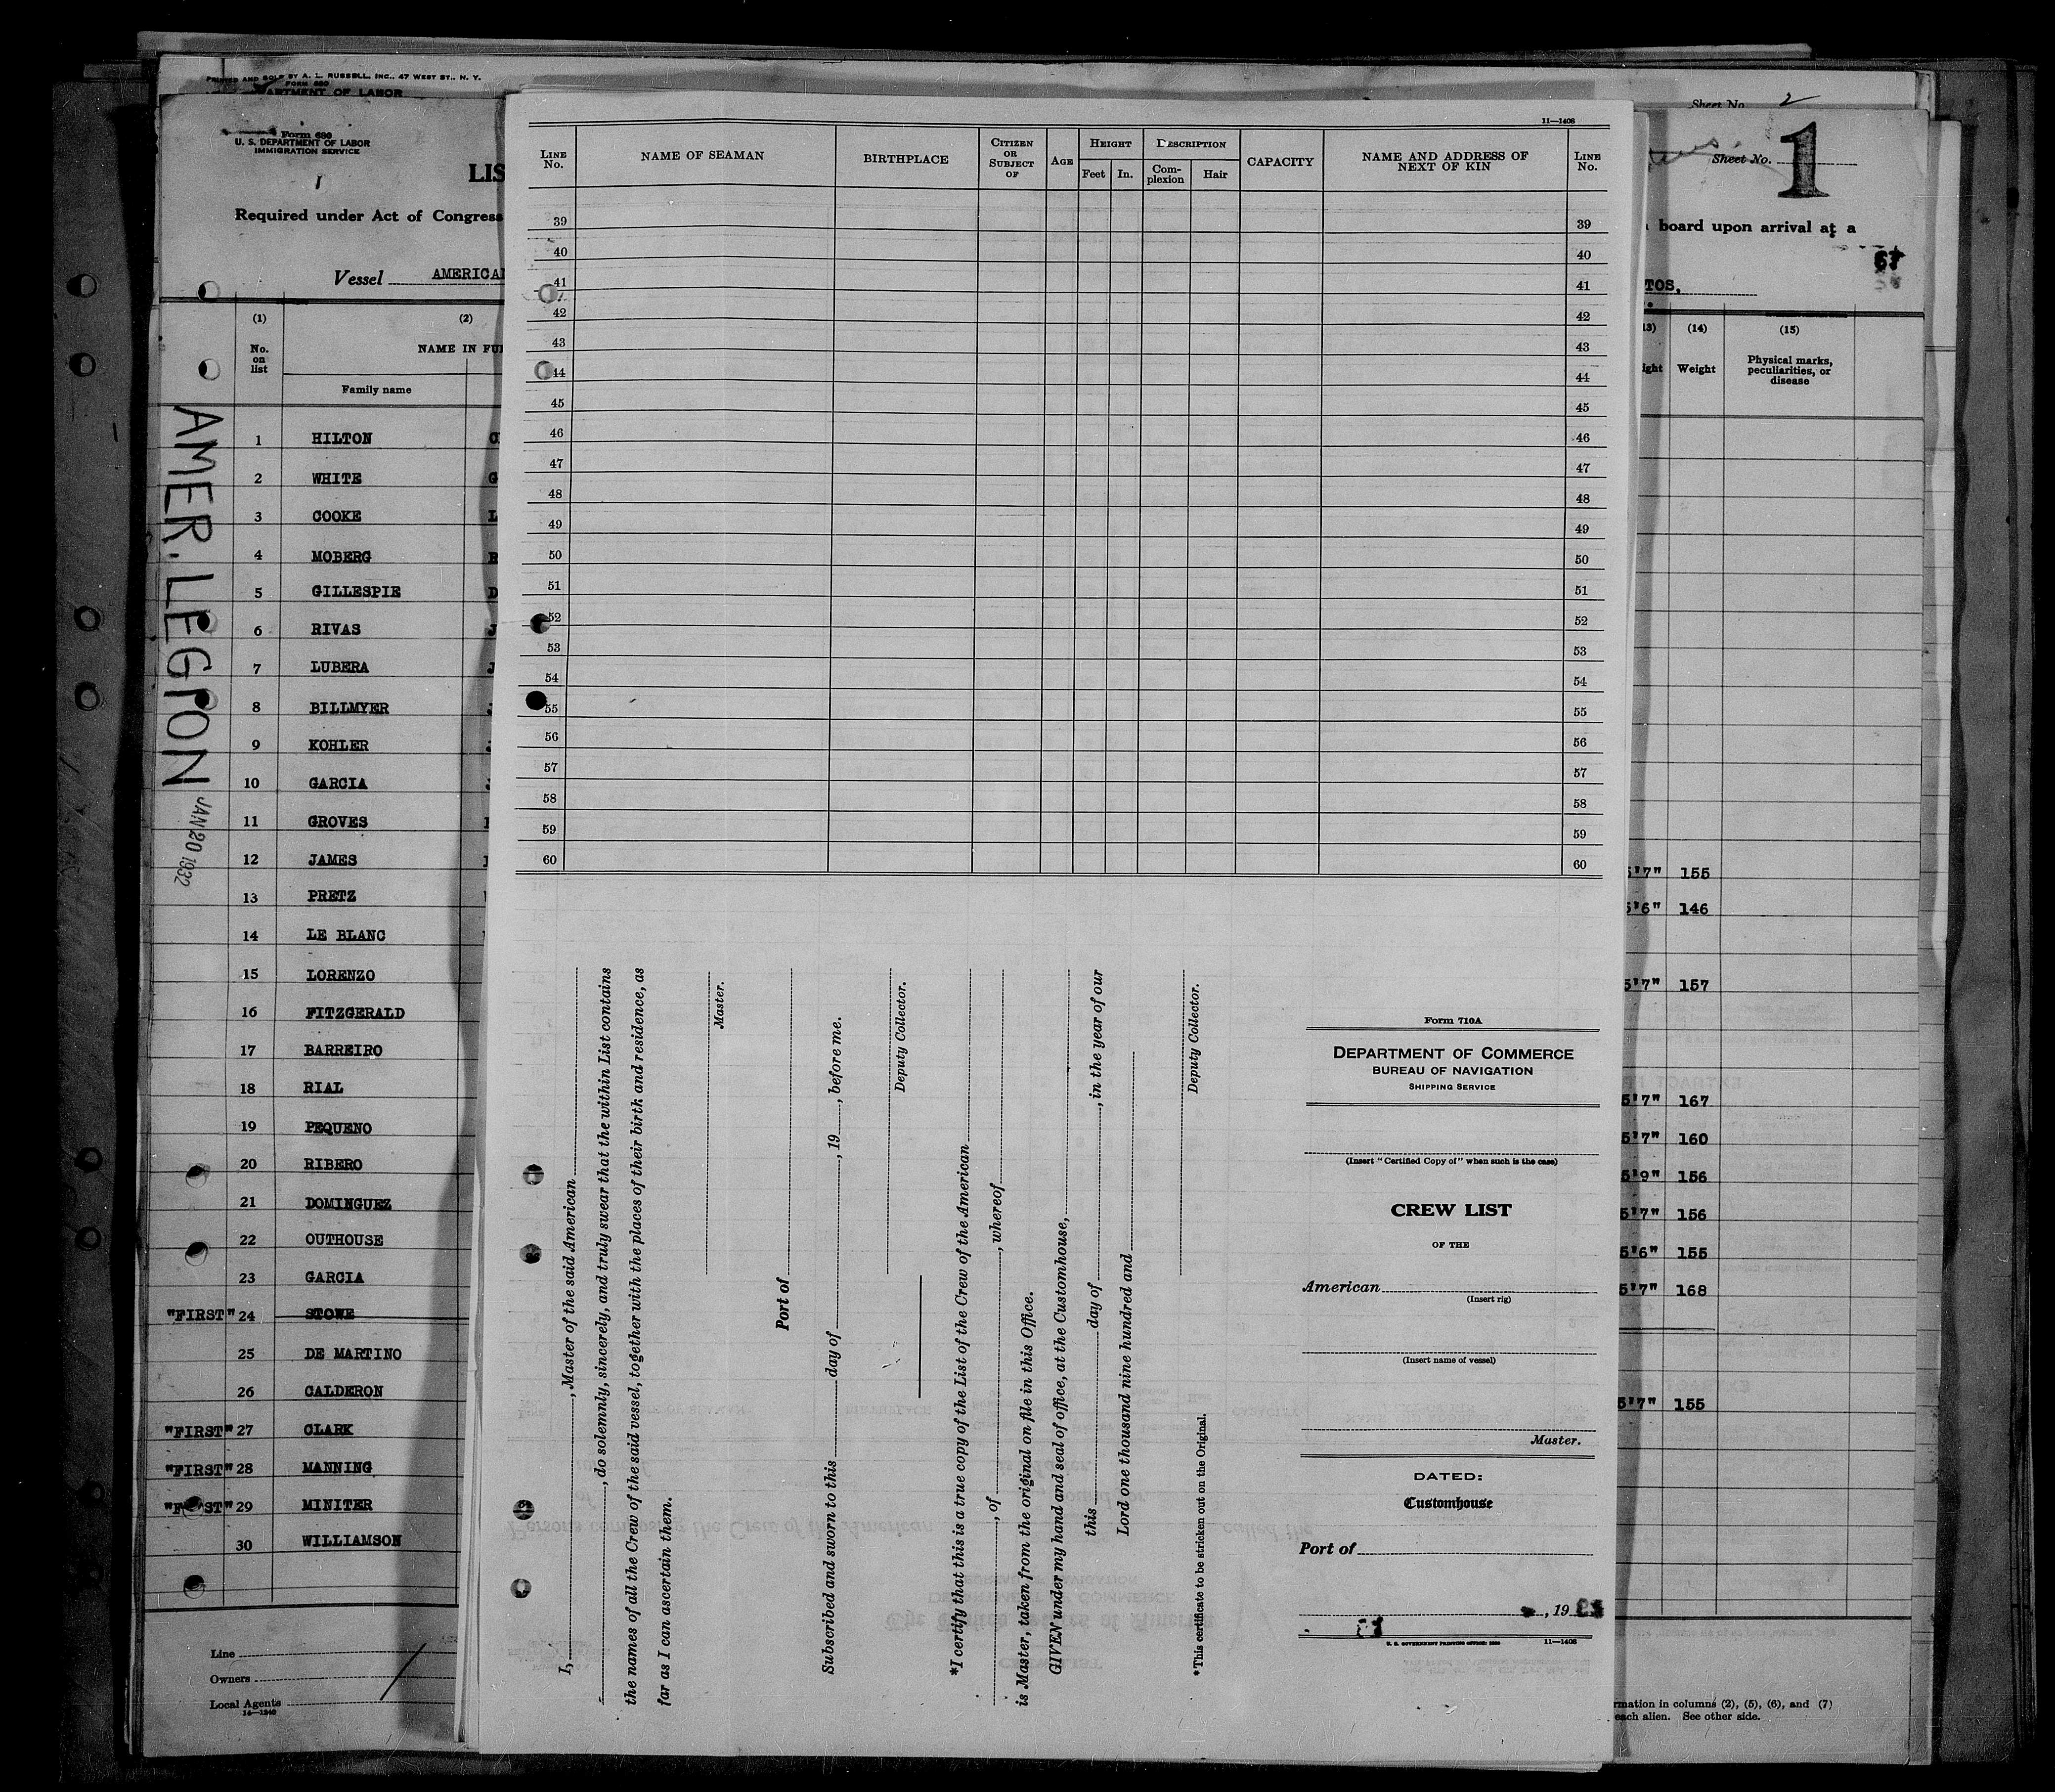 PRINTED AND SOLD BY A. L. RUSSELL, INC., 47 WEST ST., N. Y.
FORM 680
DEPARTMENT OF LABOR
Sheet No. 2
Form 680
U. S. DEPARTMENT OF LABOR
IMMIGRATION SERVICE
1
LIS
Required under Act of Congress
Vessel AMERICA
(1)
No. on list
(2)
NAME IN FU
Family name
1 HILTON C
2 WHITE G
3 COOKE L
4 MOBERG R
5 GILLESPIE D
6 RIVAS J
7 LUBERA J
8 BILLMYER J
9 KOHLER J
10 GARCIA J
11 GROVES
12 JAMES
13 PRETZ
14 LE BLANC
15 LORENZO
16 FITZGERALD
17 BARREIRO
18 RIAL
19 PEQUENO
20 RIBERO
21 DOMINGUEZ
22 OUTHOUSE
23 GARCIA
"FIRST" 24 STOWE
25 DE MARTINO
26 CALDERON
"FIRST" 27 CLARK
"FIRST" 28 MANNING
"F ST" 29 MINITER
30 WILLIAMSON
Line
Owners
Local Agents
14—1240
AMER. LEGION
JAN 20 1932
11—1408
LINE No.
NAME OF SEAMAN
BIRTHPLACE
CITIZEN OR SUBJECT OF
AGE
HEIGHT
Feet
In.
DESCRIPTION
Com-plexion
Hair
CAPACITY
NAME AND ADDRESS OF NEXT OF KIN
LINE No.
39 39
40 40
41 41
42 42
43 43
44 44
45 45
46 46
47 47
48 48
49 49
50 50
51 51
52 52
53 53
54 54
55 55
56 56
57 57
58 58
59 59
60 60
I, , Master of the said American
, do solemnly, sincerely, and truly swear that the within List contains
the names of all the Crew of the said vessel, together with the places of their birth and residence, as
far as I can ascertain them.
Master.
Port of
Subscribed and sworn to this day of , 19 , before me.
Deputy Collector.
*I certify that this is a true copy of the List of the Crew of the American
, of , whereof
is Master, taken from the original on file in this Office.
GIVEN under my hand and seal of office, at the Customhouse,
this day of , in the year of our
Lord one thousand nine hundred and
Deputy Collector.
*This certificate to be stricken out on the Original.
Form 710A
DEPARTMENT OF COMMERCE
BUREAU OF NAVIGATION
SHIPPING SERVICE
(Insert "Certified Copy of" when such is the case)
CREW LIST
OF THE
American
(Insert rig)
(Insert name of vessel)
Master.
DATED:
Customhouse
Port of
, 19
U. S. GOVERNMENT PRINTING OFFICE: 1930 11—1408
Sheet No. 1
board upon arrival at a
TOS,
13) (14) (15)
ight
Weight
Physical marks, peculiarities, or disease
5'7" 155
5'6" 146
5'7" 157
5'7" 167
5'7" 160
5'9" 156
5'7" 156
5'6" 155
5'7" 168
5'7" 155
rmation in columns (2), (5), (6), and (7)
each alien. See other side.